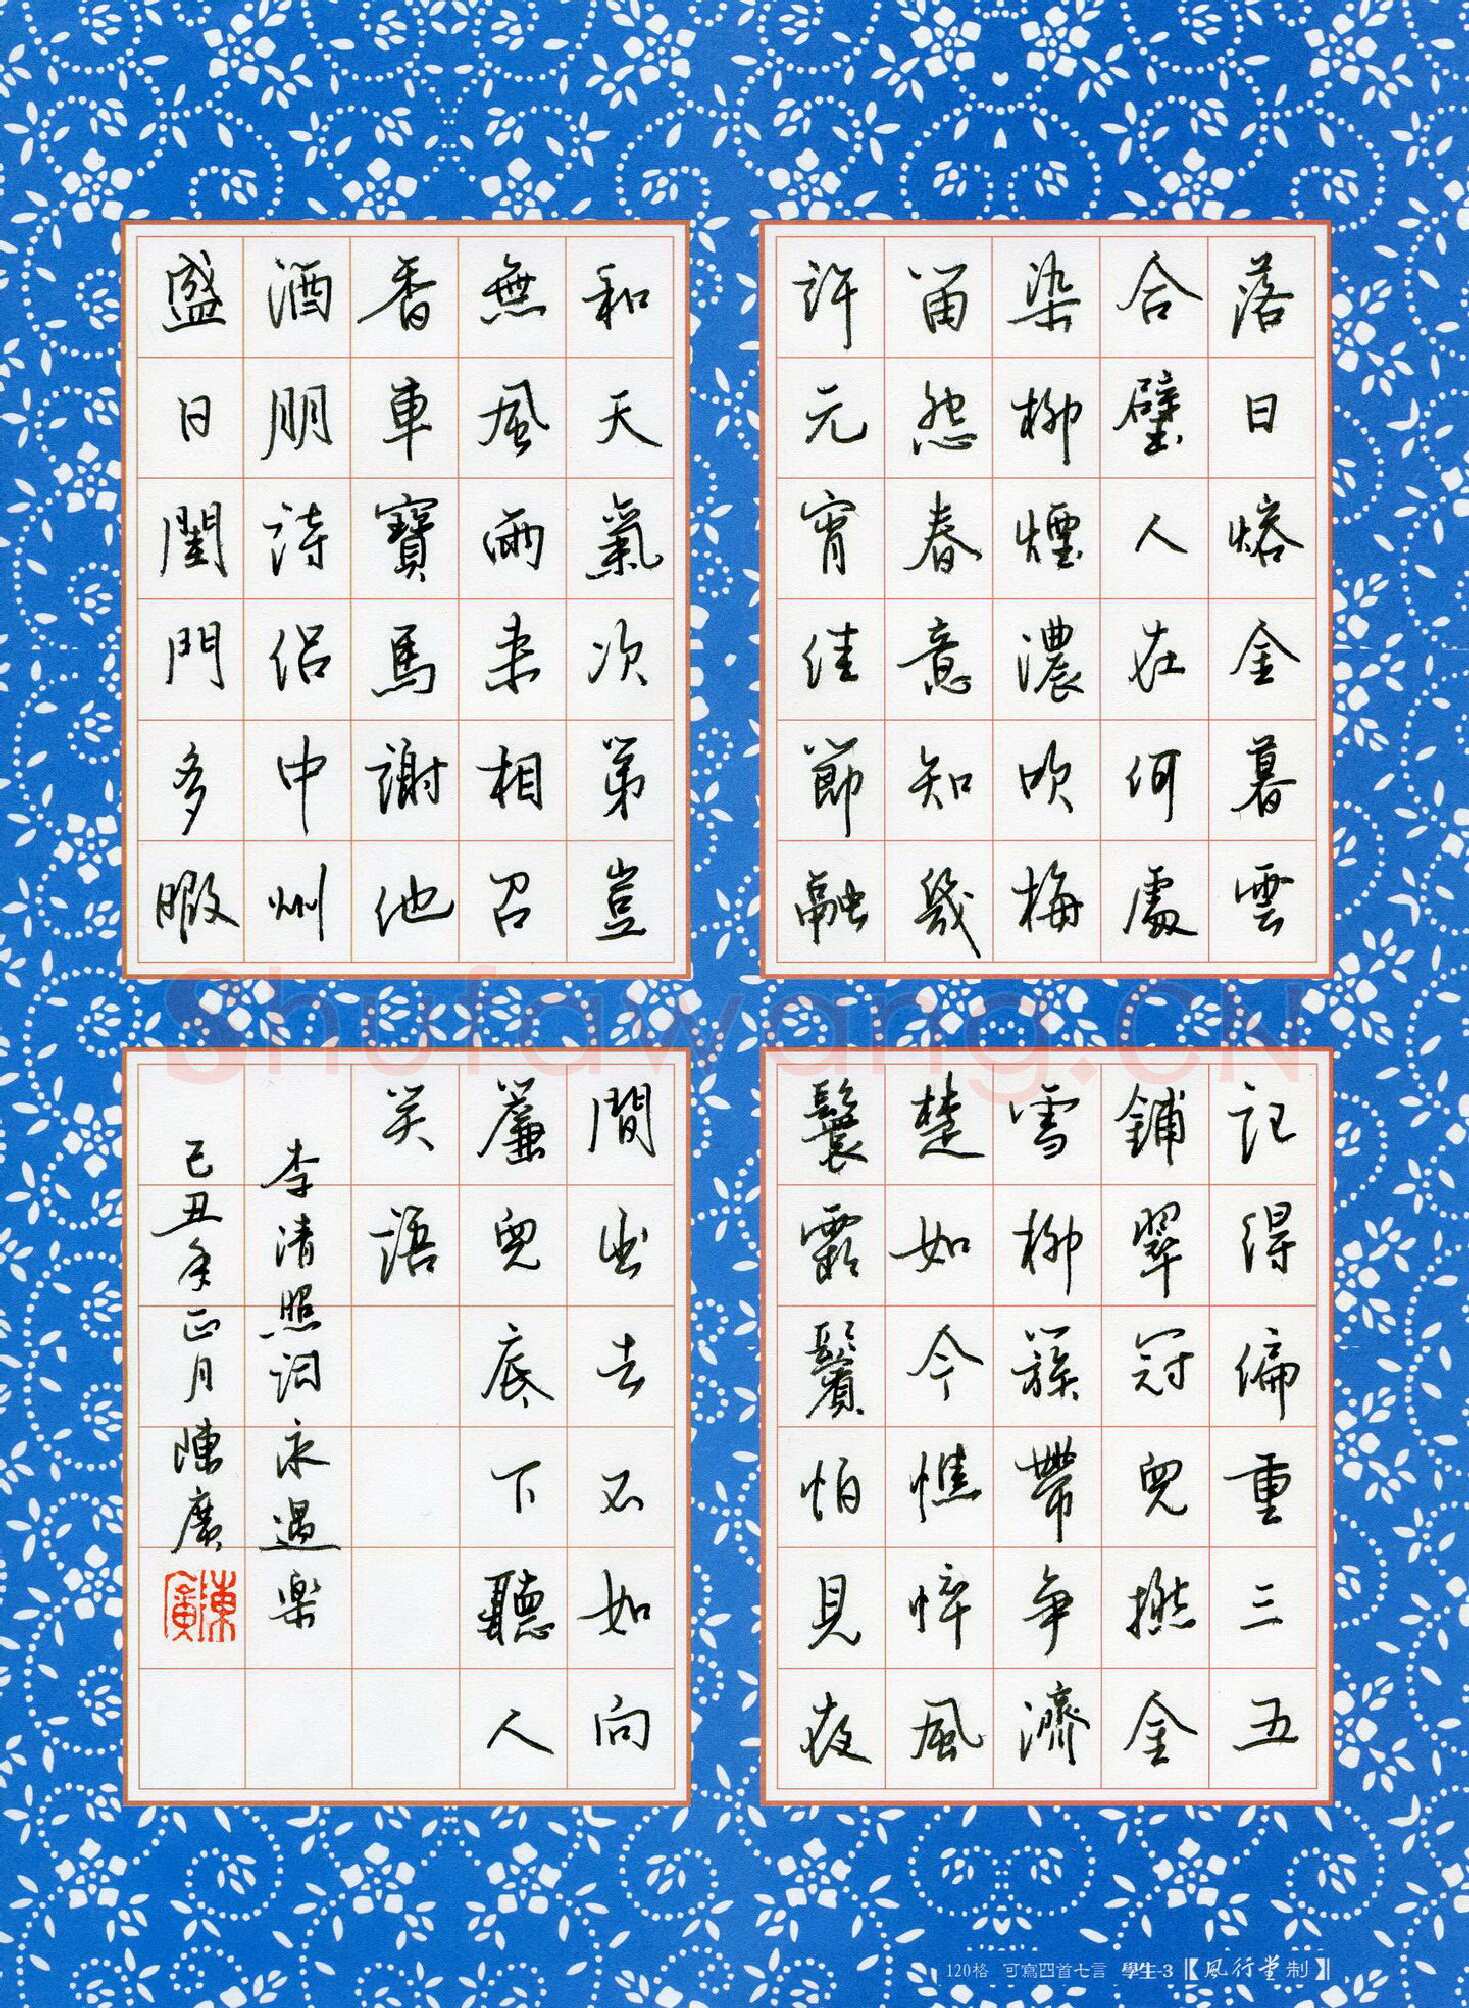 落日熔金暮雲
合璧人在何處
染柳煙濃吹梅
笛怨春意知幾
許元宵佳節融
和天氣次第豈
無風雨來相召
香車寶馬謝他
酒朋詩侶中州
盛日閨門多暇
記得偏重三五
鋪翠冠兒撚金
雪柳簇帶爭濟
楚如今憔悴風
鬟霜鬢怕見夜
間出去不如向
簾兒底下聽人
笑語
李清照詞永遇樂
己丑年正月陳廣
陳廣
Shufawang.CN
120格 可寫四首七言 學生-3【風行堂制】